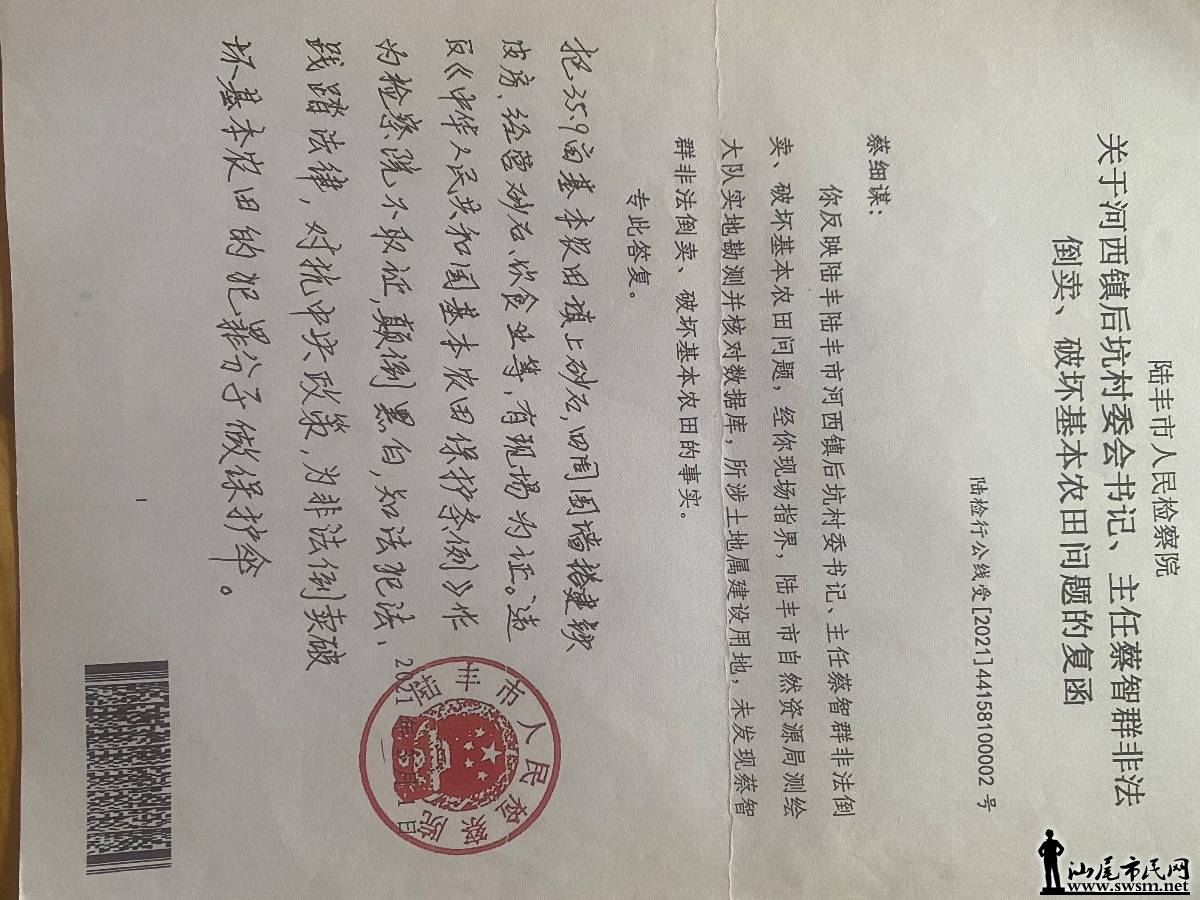 陆丰市人民检察院
关于河西镇后坑村委会书记、主任蔡智群非法
倒卖、破坏基本农田问题的复函
陆检行公线受[2021]44158100002 号
蔡细谋：
你反映陆丰陆丰市河西镇后坑村委书记、主任蔡智群非法倒
卖、破坏基本农田问题，经你现场指界，陆丰市自然资源局测绘
大队实地勘测并核对数据库，所涉土地属建设用地，未发现蔡智
群非法倒卖、破坏基本农田的事实。
专此答复。
把35.9亩基本农田填上砂石，四周围墙搭建铁
皮房、经营砂石、饮食业等，有现场为证。违
反《中华人民共和国基本农田保护条例》作
为检察院不取证，颠倒黑白，知法犯法、
践踏法律，对抗中央政策，为非法倒卖破
坏基本农田的犯罪分子做保护伞。
陆丰市人民检察院
2021年 月 日
1
汕尾市民网
www.swsm.net